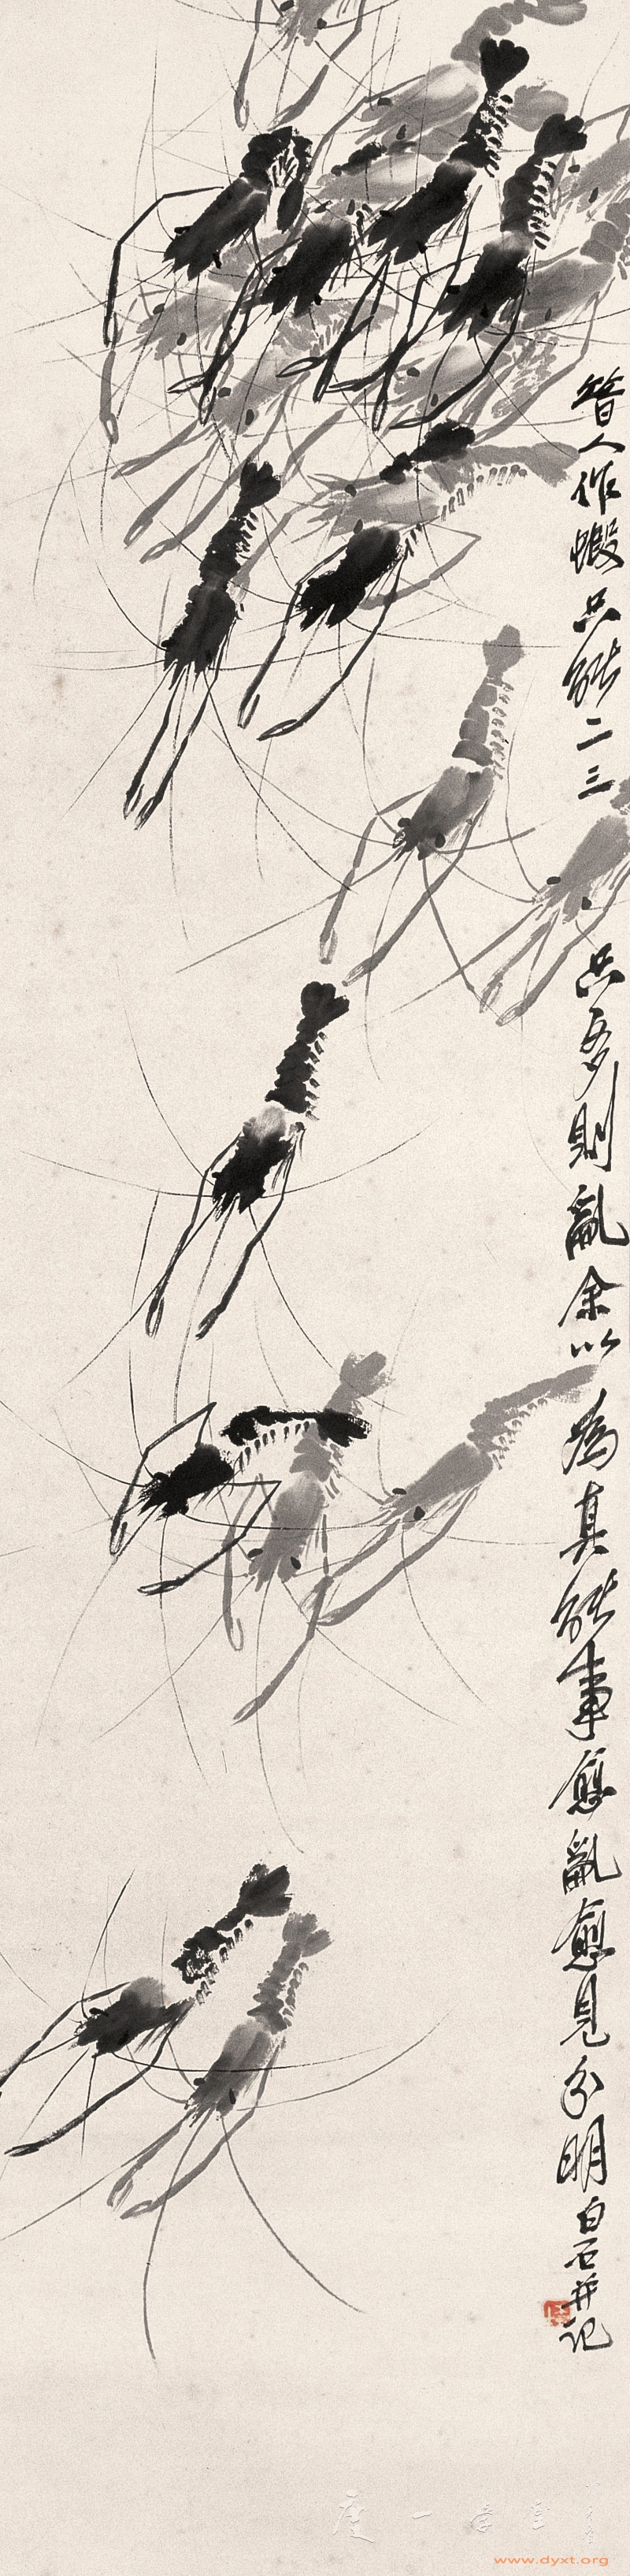 昔人作蝦只能二三只多則亂余以為真能事愈亂愈見分明白石并記
度一學堂
www.dyxt.org